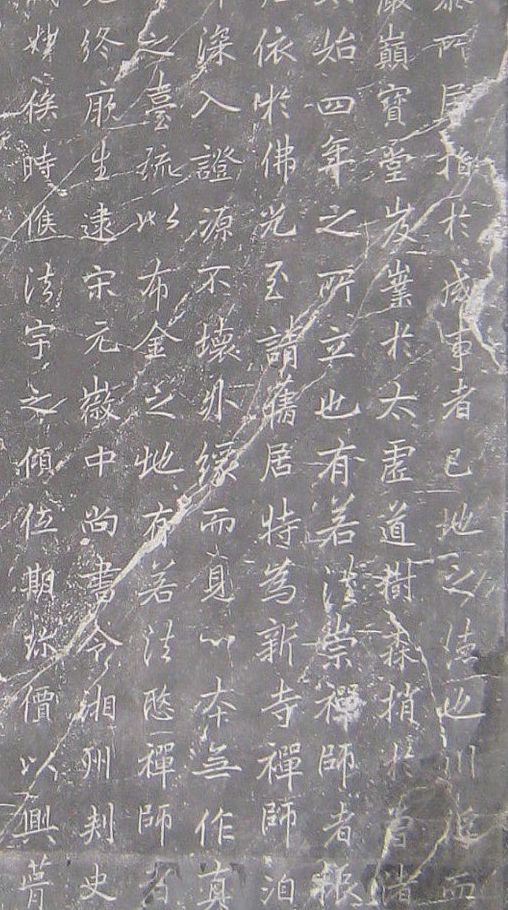 泰所居指於成事者已地之德也川浸而
巖巔寶堂岌嶪於太虛道樹森梢於曾渚
始四年之所立也有若法崇禪師者振
依於佛光至請舊居特為新寺禪師洎
深入證源不壞外緣而見心本無作真
之臺疏以布金之地有若法愍禪師者
終厥生逮宋元徽中尚書令湘州刺史
時候法宇之傾低期珍價以興葺